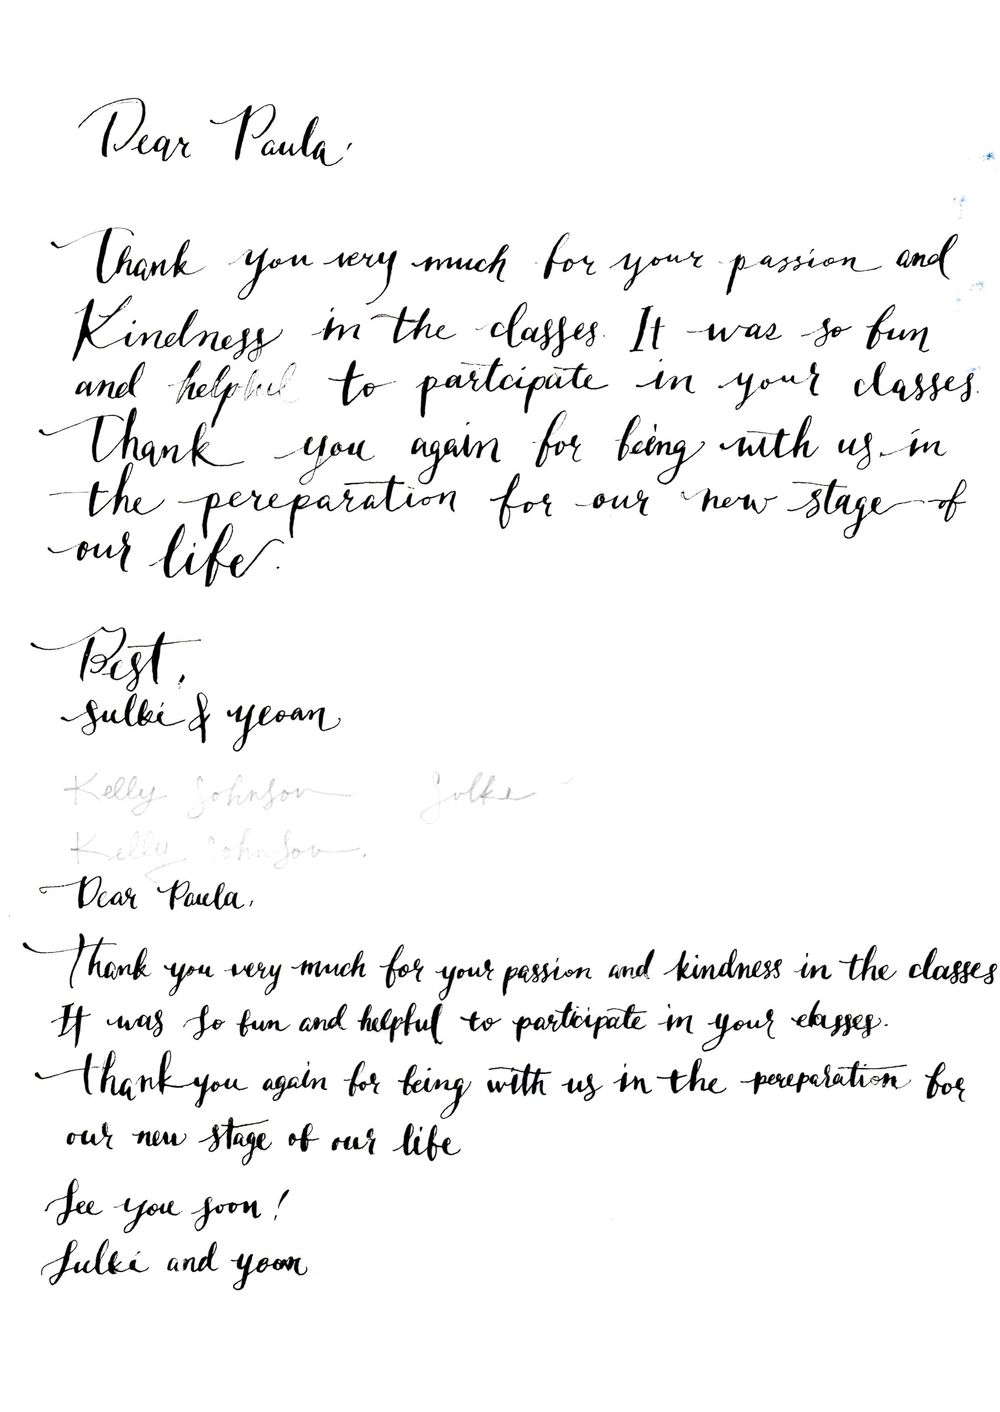 Dear Paula,
Thank you very much for your passion and
Kindness in the classes. It was so fun
and helpful to partcipate in your classes.
Thank you again for being with us in
the pereparation for our new stage of
our life.
Best,
Sulki & yeoan
Kelly Johnson Sulki
Kelly Johnson.
Dear Paula,
Thank you very much for your passion and kindness in the classes
It was so fun and helpful to participate in your classes.
Thank you again for being with us in the pereparation for
our new stage of our life
See you soon!
Sulki and yoon